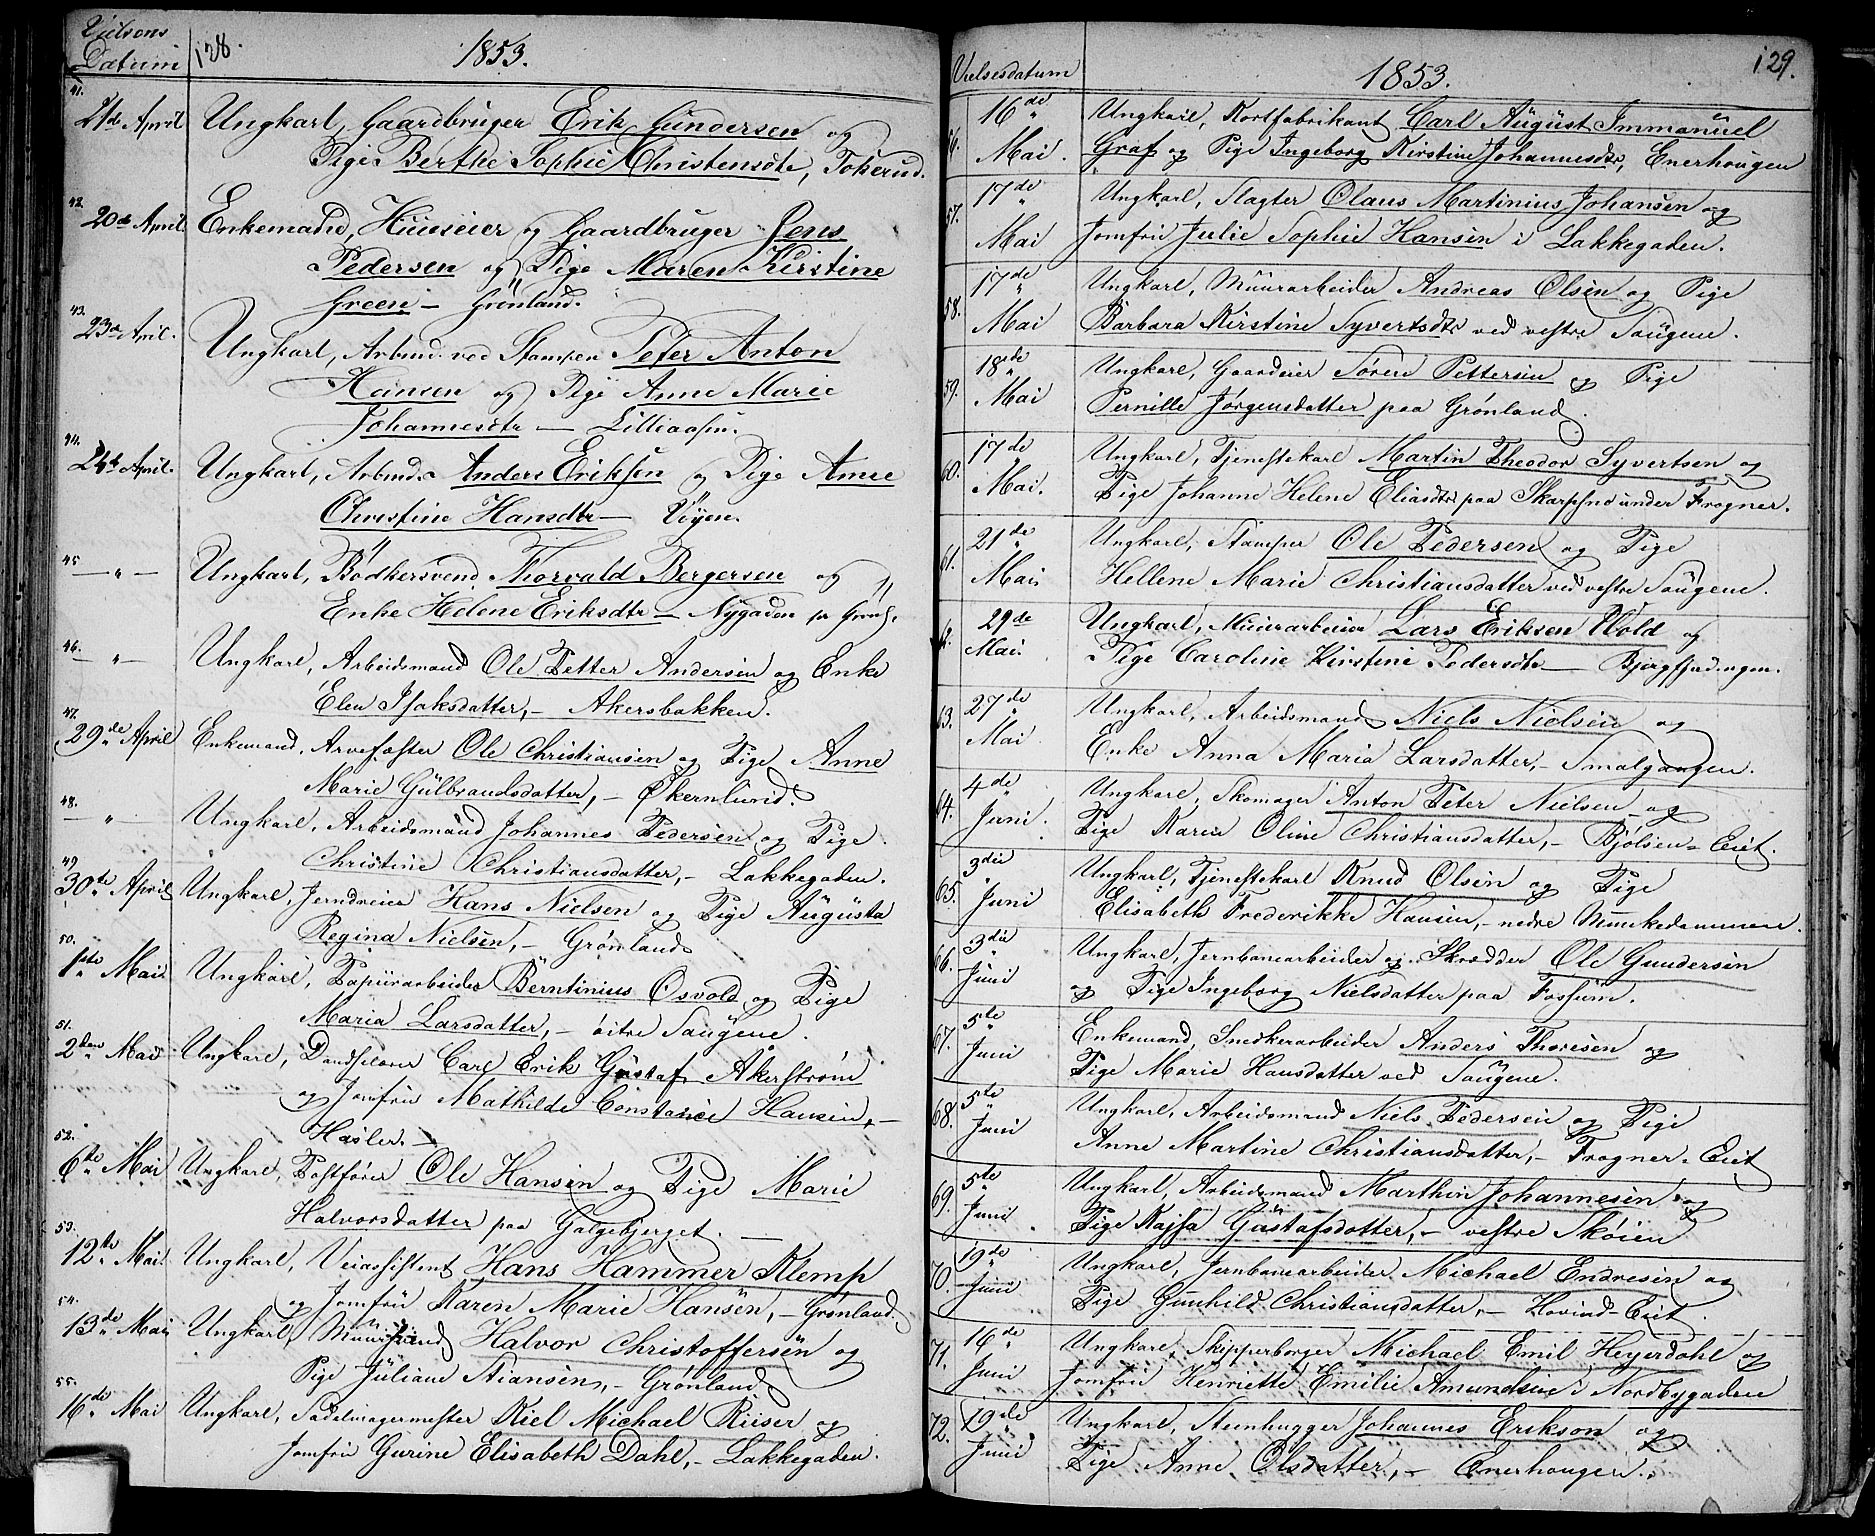 Vielsens
Datum
128.
1853.
41.
21de April Ungkarl, Gaardbruger Erik Gundersen og
Pige Berthe Sophie Christensdtr, Tokerud.
42.
20de April Enkemand, Huuseier og Gaardbruger Jens
Pedersen og Pige Maren Kirstine
Green – Grønland.
43.
23de April. Ungkarl, Arbmd. ved Stampen Peter Anton
Hansen og Pige Anne Marie
Johannesdtr – Lilleaasen.
44.
24de April. Ungkarl, Arbmd. Anders Eriksen og Pige Anne
Christine Hansdtr – Vøyen.
45
— " — Ungkarl, Bødkersvend Thorvald Bergersen og
Enke Helene Eriksdtr – Nygaden pr Grønl.
46.
— " — Ungkarl, Arbeidsmand Ole Petter Andersen og Enke
Elen Isaksdatter, – Akersbakken.
47.
29de April Enkemand, Arvefæster Ole Christiansen og Pige Anne
Marie Gulbrandsdatter, – Økernlund.
48.
— " — Ungkarl, Arbeidsmand Johannes Pedersen og Pige
Christine Christiansdatter, – Lakkegaden.
49.
30te April Ungkarl, Jerndreier Hans Nielsen og Pige Augusta
Regina Nielsen, – Grønland
50.
1ste Mai. Ungkarl, Papiirarbeider Berntinius Osvold og Pige
Maria Larsdatter, – øitre Saugene.
51.
2den Mai Ungkarl, Dandselærer Carl Erik Gustaf Åkerstrøm
og Jomfru Mathilde Constance Hansen, –
Hasler. –
52.
6te Mai Ungkarl, Postfører Ole Hansen og Pige Marie
Halvorsdatter paa Galgebjerget. —
53.
12te Mai. Ungkarl, Veiassistent Hans Hammer Klemp
og Jomfru Karen Marie Hansen, – Grønland.
54.
13de Mai Ungkarl, Halvor Christoffersen og
Pige Juliane Stiansen, – Grønland
55.
16de Mai Ungkarl, Sadelmagermester Kiel Michael Riiser og
Jomfru Gurine Elisabeth Dahl, – Lakkegaden.
Vielsesdatum
1853.
129.
16de Ungkarl, Kortfabrikant Carl August Immanuel
56. Mai. Graf og Pige Ingeborg Kirstine Johannesdtr, Enerhougen
17de Ungkarl, Slagter Olaus Martinius Johansen og
57. Mai Jomfru Julie Sophie Hansen i Lakkegaden.
17de Ungkarl, Muurarbeider Andreas Olsen og Pige
58. Mai Barbara Kirstine Syvertsdtr ved vestre Saugene.
18de Ungkarl, Gaardeier Søren Pettersen og Pige
59. Mai Pernille Jørgensdatter paa Grønland.
17de Ungkarl, Tjenestekarl Martin Theodor Syvertsen og
60. Mai. Pige Johanne Helene Eliasdtr paa Skarpsno under Frogner.
21de Ungkarl, Stamper Ole Pedersen og Pige
61. Mai Hellene Marie Christiansdatter ved vestre Saugene.
29de Ungkarl, Muurarbeider Lars Eriksen Wold og
62. Mai Pige Caroline Kirstine Pedersdtr –
27de Ungkarl, Arbeidsmand Niels Nielsen og
63. Mai Enke Anna Maria Larsdatter, – Smalgangen.
4de Ungkarl, Skomager Anton Peter Nielsen og
64. Juni. Pige Karen Oline Christiansdatter, – Bjølsen-Eiet.
3die Ungkarl, Tjenestekarl Knud Olsen og Pige
65. Juni Elisabeth Frederikke Hansen, – nedre Munkedammen.
3die Ungkarl, Jernbanearbeider og Skrædder Ole Gundersen
66. Juni og Pige Ingeborg Nielsdatter paa Fossum.
5te Enkemand, Snedkerarbeider Anders Thoresen og
67. Juni Pige Marie Hansdatter ved Saugene.
5te Ungkarl, Arbeidsmand Niels Pedersen og Pige
68. Juni Anne Martine Christiansdatter, – Frogner-Eiet
5te Ungkarl, Arbeidsmand Marthin Johannesen og
69. Juni Pige Kajsa Gustafsdatter, – vestre Skøien
19de Ungkarl, Jernbanearbeider Michael Endresen og
70. Juni Pige Gunhild Christiansdatter, – Hovind-Eiet.
16de Ungkarl, Skipperborger Michael Emil Heyerdahl og
71. Juni Jomfru Henriette Emilie Amundsen i Nordbygaden
19de Ungkarl, Steenhugger Johannes Erikson og
72. Juni Pige Anne Olsdatter, – Enerhougen.